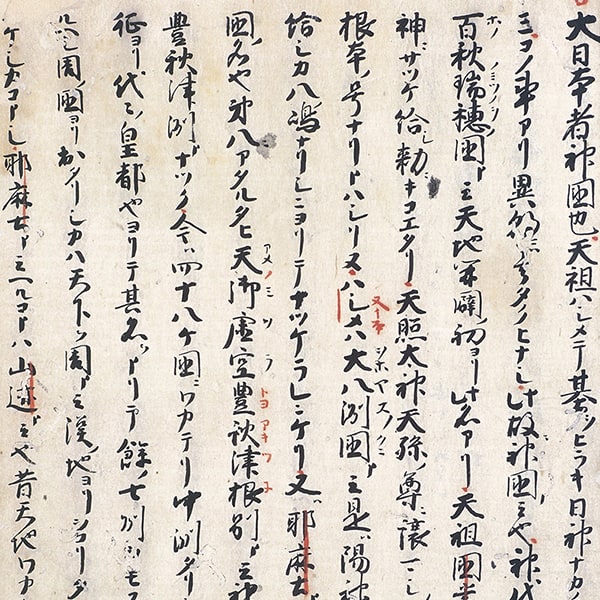 大日本者神國也天祖ハシメテ基ヲヒラキ日神ナカ
ミコノ事アリ異朝ニハ其タクヒナシ此故神國ト云也神代
百秋瑞穂國ト云天地開闢初ヨリ此名アリ天祖國
神ニサツケ給シ勅ニキコエタリ天照大神天孫ノ尊ニ譲マシ
根本ノ号ナリトハシリヌヘシ又ハ大八洲國ト云是ハ陽神
給シカ八嶋ナリシニヨリテナツケラレニケリ又ハ耶麻土
國ノ名也第八ニアタルタヒ天御虚空豊秋津根別ト云神
豊秋津洲トナツク今ハ四十八ケ國ニワカテリ中洲タリ
征ヨリ代々皇都也ヨリテ其名ヲトリテ餘ノ七州ヲモス
ルヘシ周ノ國ヨリ出タリシカハ天下ヲ周ト云漢地ヨリヲコリタ
ケシカコトシ耶麻土ト云ヘルコトハ山迹ト云也昔天地ワカ